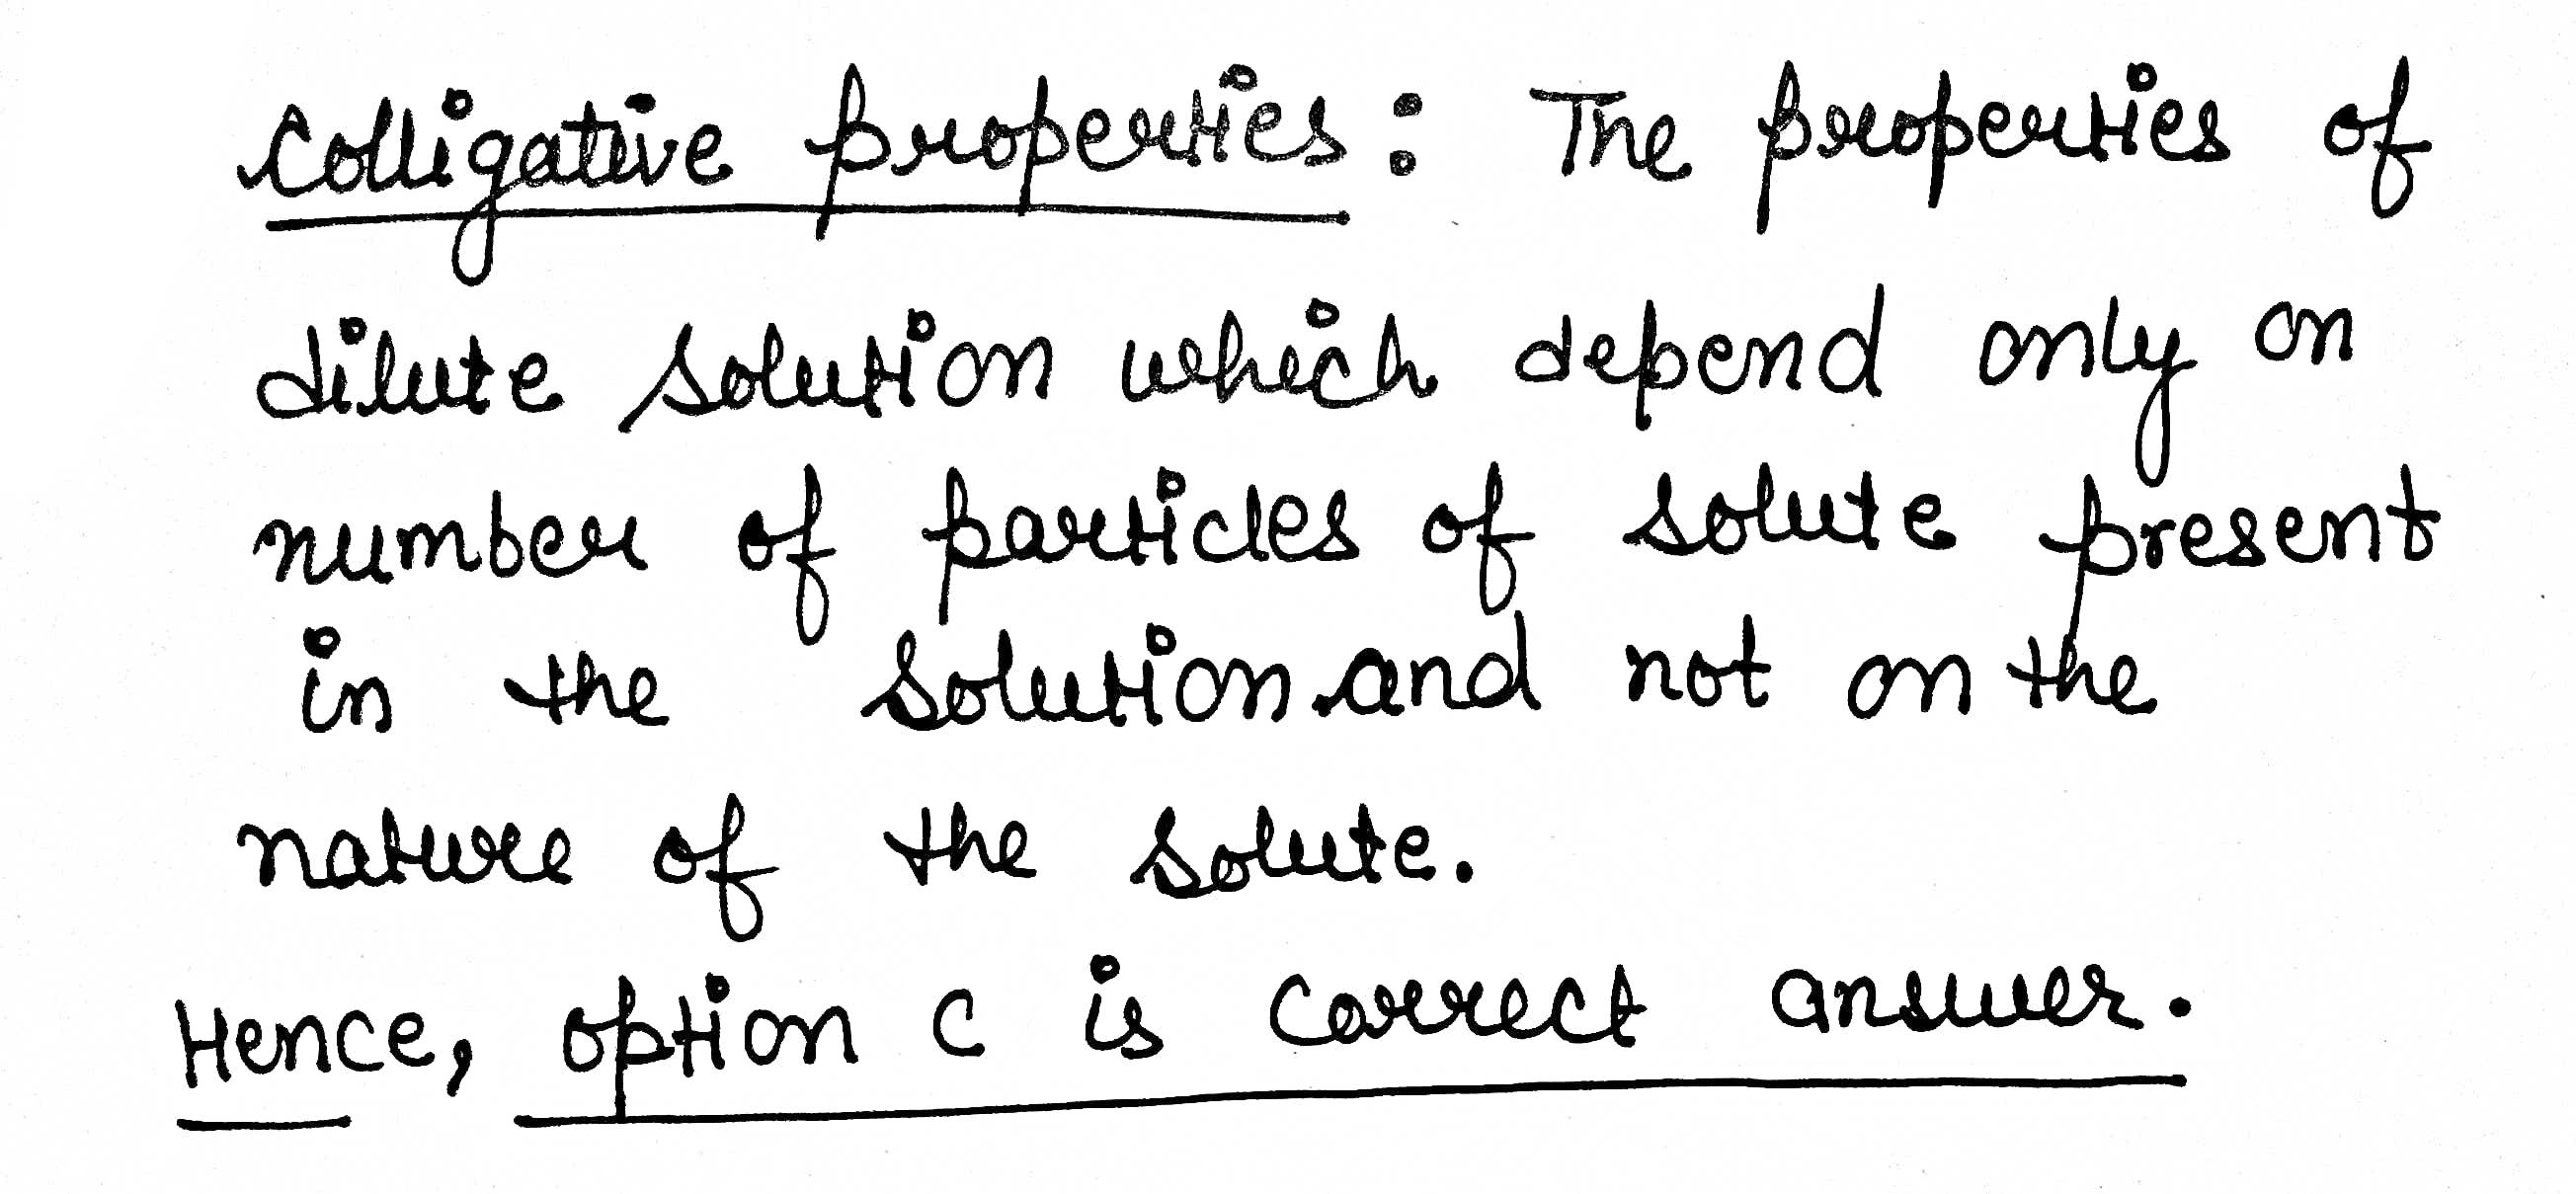 Colligative properties: The properties of
dilute solution which depend only on
number of particles of solute present
in the solution and not on the
nature of the solute.
Hence, option C is correct answer.